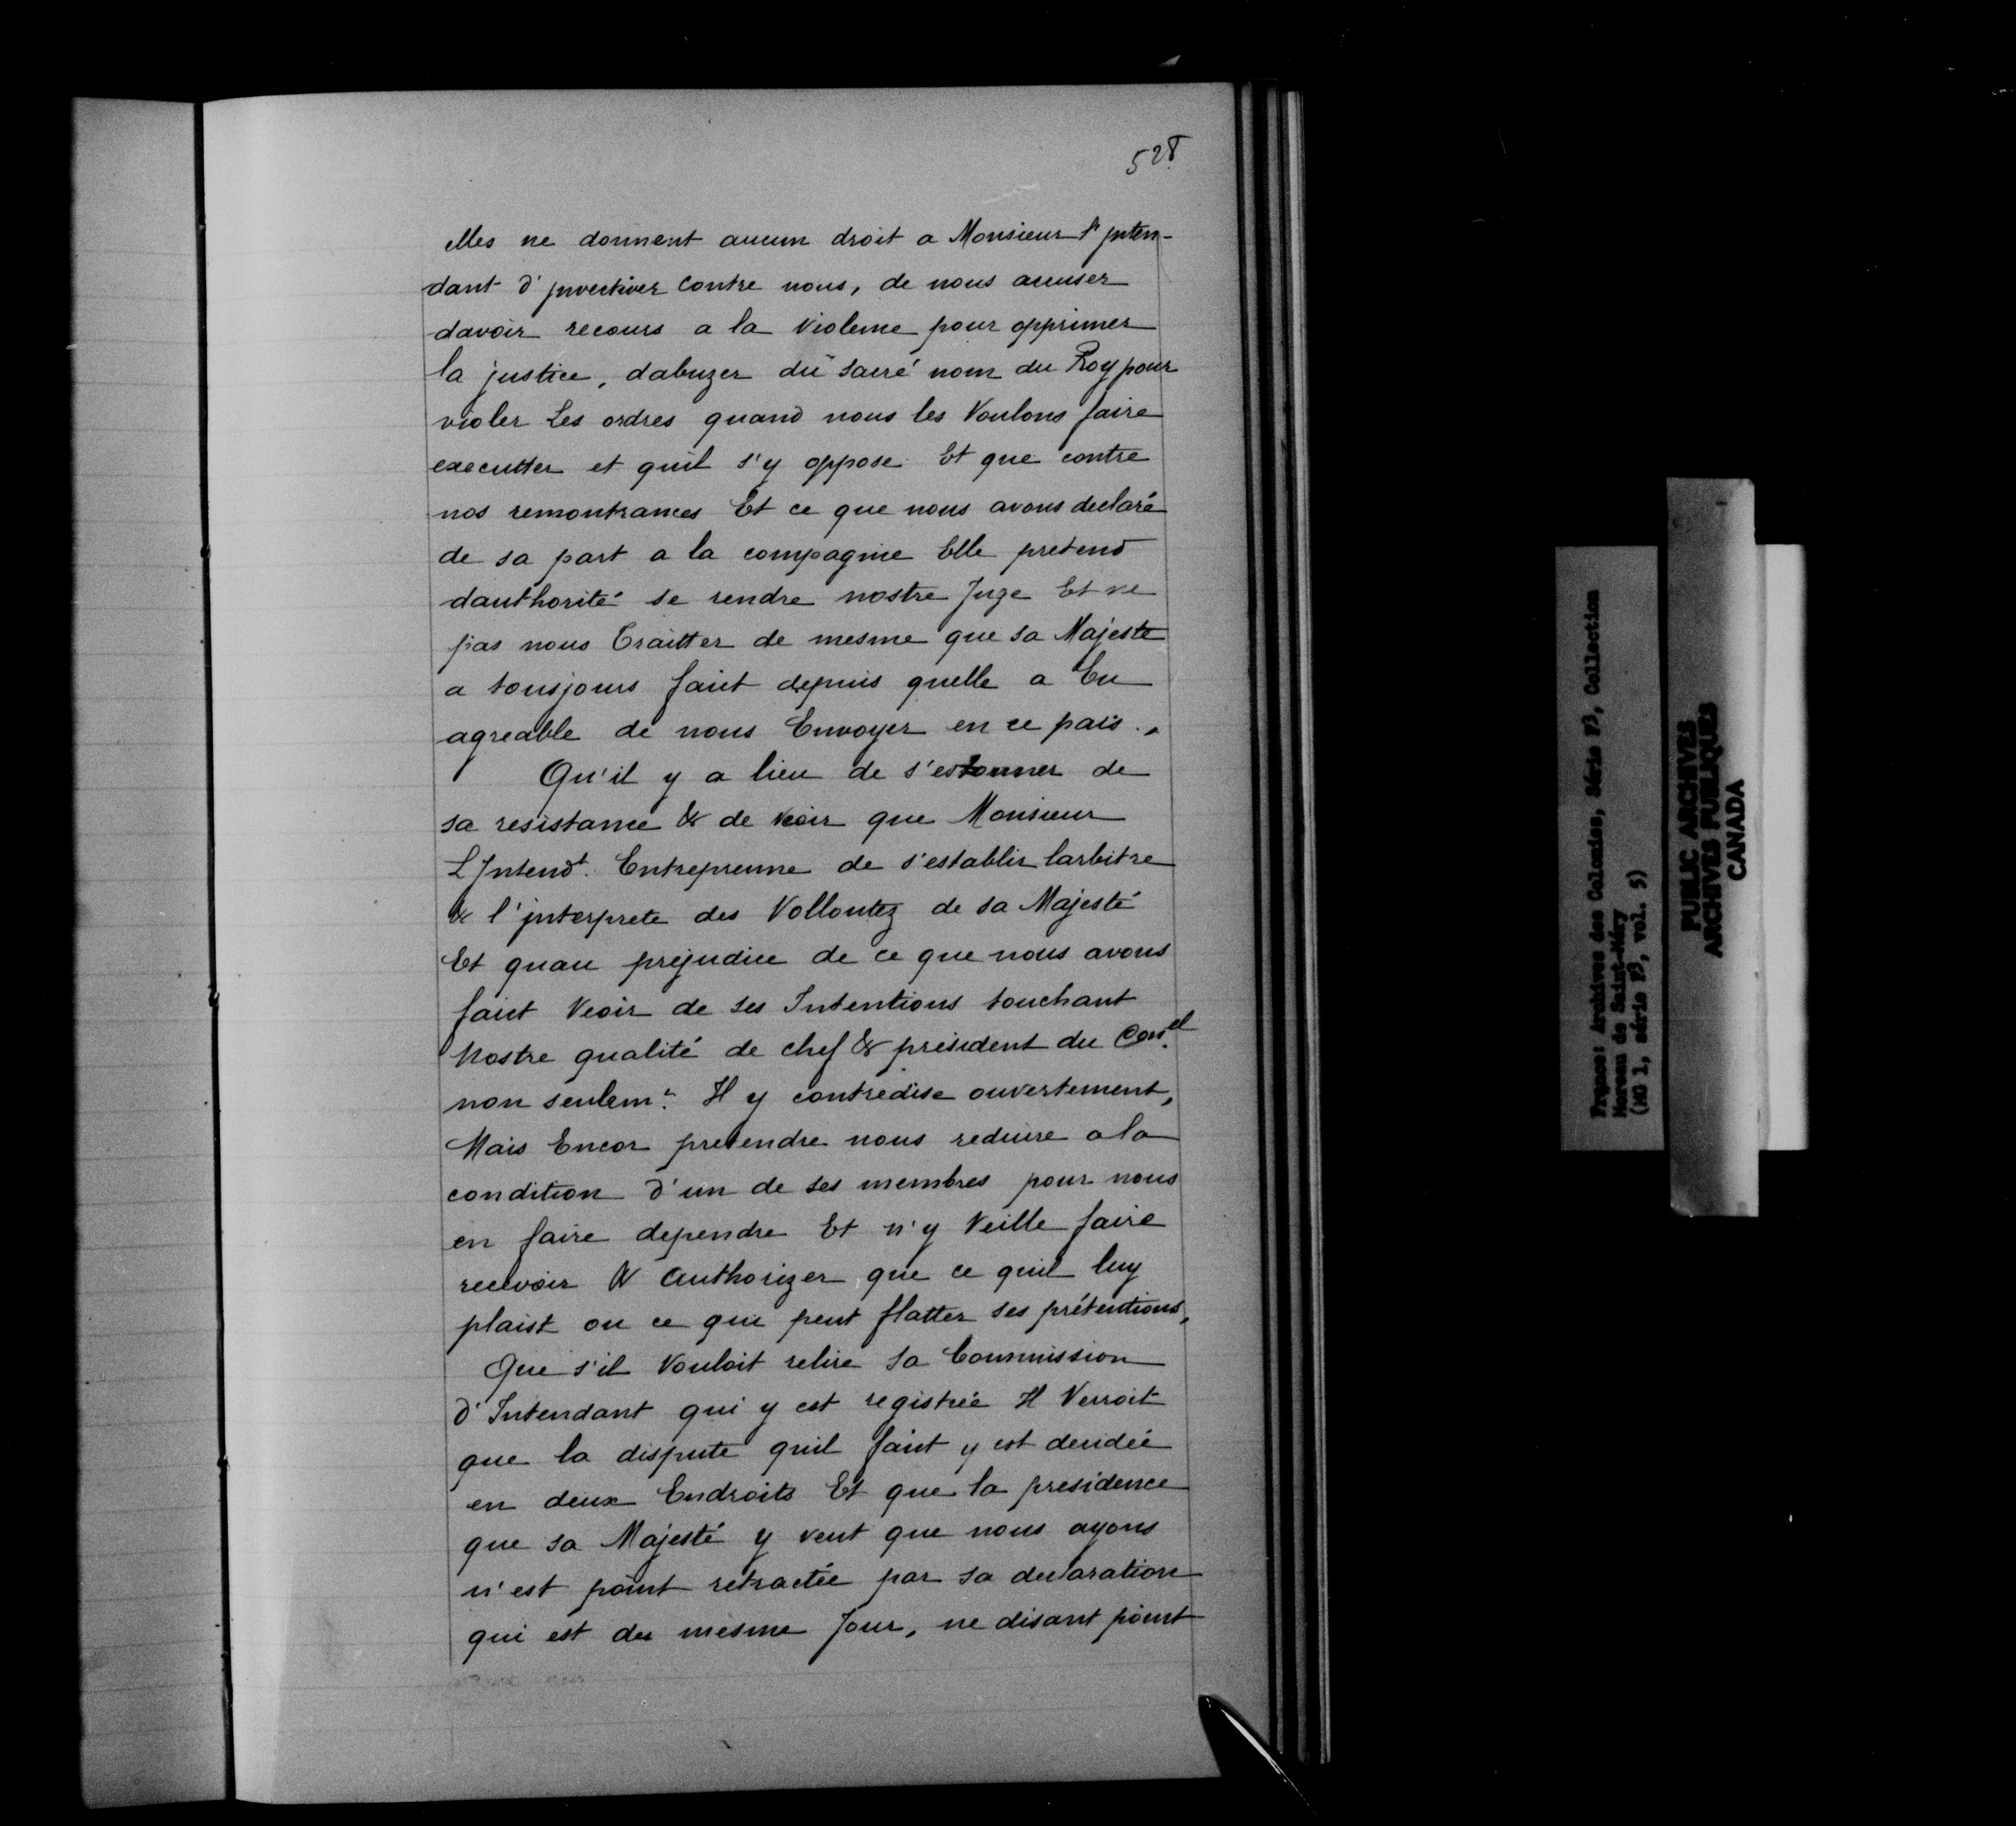 528
elles ne donnent aucun droit a Monsieur l'jnten-
dant d'jnvectiver contre nous, de nous accuser
davoir recours a la violence pour opprimer
la justice, dabuzer du sacré nom du Roy pour
violer Les ordres quand nous les Voulons faire
executter et quil s'y oppose Et que contre
nos remontrances Et ce que nous avons declaré
de sa part a la compagnie Elle pretend
dauthorité se rendre nostre Juge Et ne
pas nous traitter de mesme que sa Majesté
a tousjours faict depuis quelle a Eu
agreable de nous Envoyer en ce païs.,
Qu'il y a lieu de s'estonner de
sa resistance & de veoir que Monsieur
L'Intend^t. Entreprenne de s'establir larbitre
& l'jnterprete des Vollontez de sa Majesté
Et quau prejudice de ce que nous avons
faict Veoir de ses Intentions touchant
Nostre qualité de chef & président du Cons.^el
non seulem.^t Il y contredise ouvertement,
Mais Encor pretendre nous reduire a la
condition d'un de ses membres pour nous
en faire dependre Et n'y Veille faire
recevoir & authorizer que ce quil luy
plaist ou ce qui peut flatter ses prétentions,
Que s'il Vouloit relire sa Commission
d'Intendant qui y est registrée Il Verroit
que la dispute quil faict y est decidée
en deux Endroits Et que la presidence
que sa Majesté y veut que nous ayons
n'est point retractée par sa declaration
qui est du mesme Jour, ne disant point
France: Archives des Colonies, Série F3, Collection
Moreau de Saint-Méry
(MG 1, série F3, vol. 5)
PUBLIC ARCHIVES
ARCHIVES PUBLIQUES
CANADA